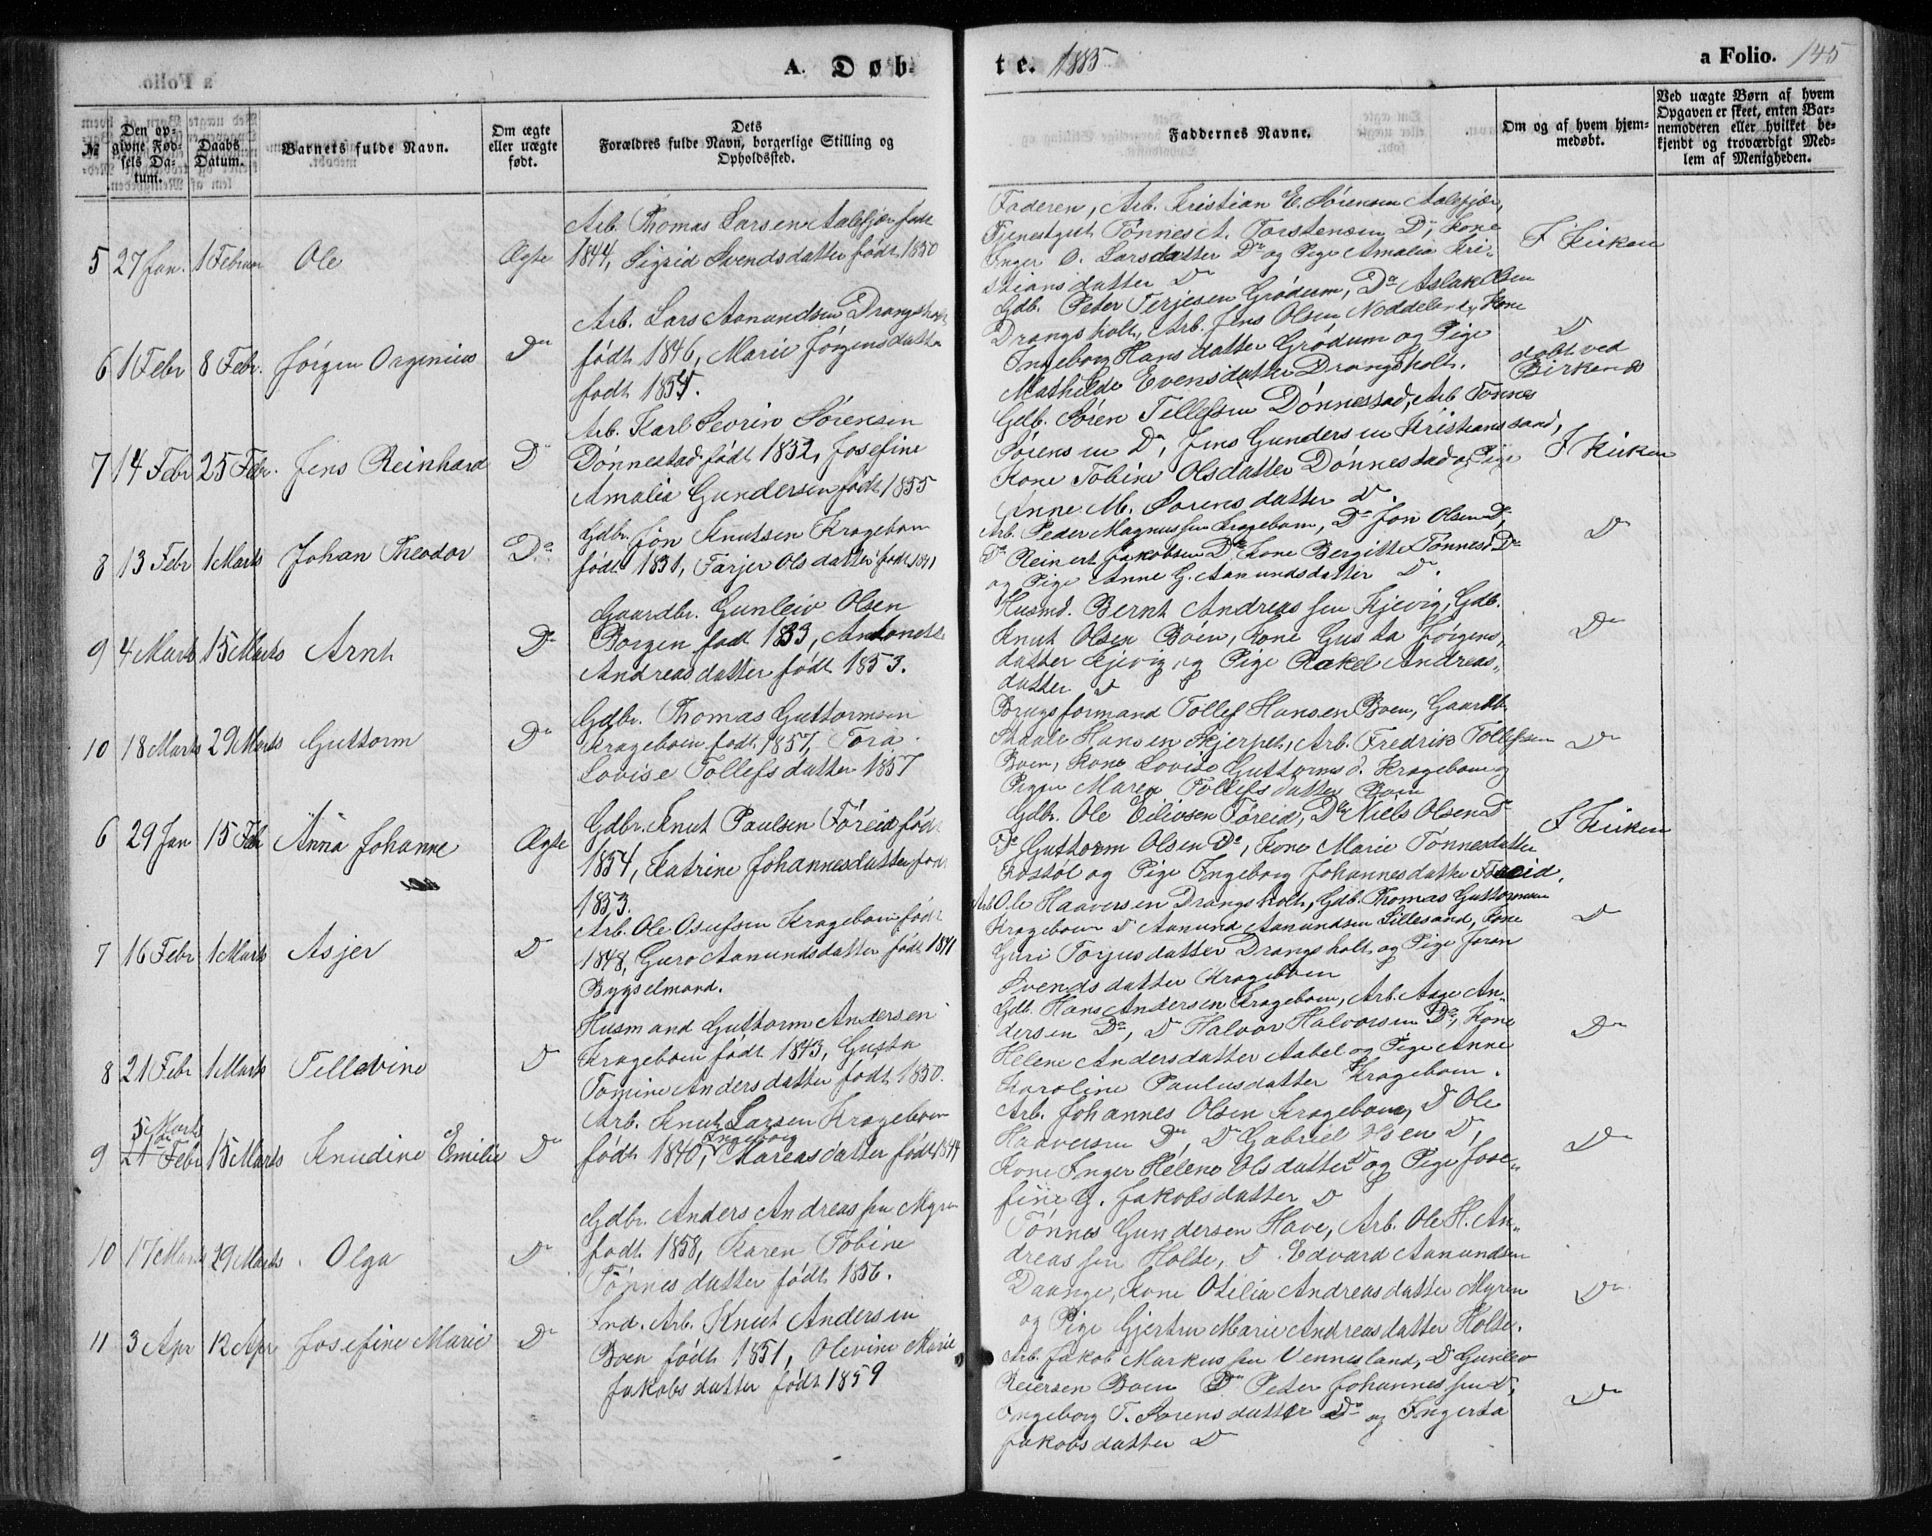 A. Døb-
te. 1885
a Folio. 145
№
Den op-
givne Fød-
sels Da-
tum.
Daabs
Datum.
Barnets fulde Navn.
Om ægte
eller uægte
født.
Dets
Forældres fulde Navn, borgerlige Stilling og
Opholdssted.
Faddernes Navne.
Om og af hvem hjem-
medøbt.
Ved uægte Børn af hvem
Opgaven er skeet, enten Bar-
nemoderen eller hvilket be-
kjendt og troværdigt Med-
lem af Menigheden.
5 27 Jan. 1 Februar Ole Ægte
Arb. Thomas Larsen Aalefjær født
1844, Sigrid Svendsdatter født 1850
Faderen, Arb. Kristian E. Sørensen Aalefjær,
Tjenestgut Tønnes A. Torstensen Do, Kone
Inger O. Larsdatter Do og Pige Amalia Kri-
stiansdatter Do
I Kirken
6 1 Febr 8 Febr. Jørgen Orgenius Do
Arb. Lars Aanundsen Drangsholt
født 1846, Marie Jørgensdatter
født 1854.
Gdb. Peter Terjesen Grødum, Do Aslak Olsen
Drangsholt, Arb. Jens Olsen Noddeland, Kone
Ingeborg Hansdatter Grødum og Pige
Mathilde Evensdatter Drangsholt.
Do
døbt ved
Birkenes
7 14 Febr 25 Febr. Jens Reinhard Do
Arb. Karl Severin Sørensen
Dønnestad født 1852, Josefine
Amalia Gundersen født 1855
Gdb. Søren Tellefsen Dønnestad, Arb Tønnes
Sørensen Do, Jens Gundersen Kristianssand,
Kone Tobine Olsdatter Dønnestad og Pige
Anne M. Sorensdatter Do.
I Kirken
8 13 Febr 1 Marts Johan Theodor Do
Gdbr. Jon Knutsen Kragebom
født 1831, Tarjer Olsdatter født 1841
Arb. Peder Magnussen Kragebom, Do Jon Olsen Do,
Do Reinert Jakobsen Do Kone Bergitte Tønnesd. Do
og Pige Anne G. Aanundsdatter Do.
Do
9 4 Marts 15 Marts Arnt Do
Gaardbr. Gunleiv Olsen
Borgen født 1833, Antonette
Andreasdatter født 1853.
Husmd. Bernt Andreassen Kjevig, Gdb.
Knut Olsen Boen, Kone Gusta Jørgens-
datter Kjevig, og Pige Rakel Andreas-
datter Do
Do
10 18 Marts 29 Marts Guttorm Do
Gdbr. Thomas Guttormsen
Krageboen født 1857, Tora
Lovise Tollefsdatter 1857
Brugsformand Tollef Hansen Boen, Gaardb.
Staale Hansen Skjerpet, Arb. Fredrik Tollefsen
Boen, Kone Lovise Guttormsd. Krageboen og
Pigen Maren Tollefsdatter Boen
Do
6 29 Jan 15 Feb Anna Johanne Ægte
Gdbr. Knut Paulsen Føreid født
1854, Katrine Johannesdatter født
1853.
Gdbr. Ole Eilivsen Føreid, Do Niels Olsen Do
Do Guttorm Olsen Do, Kone Marie Tønnesdatter
Rostøl og Pige Ingeborg Johannesdatter Føreid.
I Kirken
7 16 Febr 1 Marts Asjer Do
Arb. Ole Osufsen Krageboen født
1848, Guro Aanundsdatter født 1841
Bygselmand.
Arb. Ole Haaversen Drangsholt, Gdb. Thomas Guttormsen
Krageboen Do Aanund Aanundsen Lillesand, Kone
Guri Torjusdatter Drangsholt og Pige Joran
Svendsdatter Krageboen
Do
8 21 Febr 1 Marts Tellevine Do
Husmand Guttorm Andersen
Krageboen født 1843, Gusta
Tomine Andersdatter født 1850.
Gdb. Hans Andersen Krageboen, Arb. Aage An-
dersen Do, Do Halvor Halvorsen Do, Kone
Helene Andersdatter Aabel og Pige Anne
Karoline Paulusdatter Krageboen.
Do
5 Marts
9 21de Febr 15 Marts Knudine Emilie Do
Arb. Knut Larsen Krageboen
født 1840, Ingeborg Mareasdatter født 1844
Arb. Johannes Olsen Krageboen, Do Ole
Haaversen Do, Do Gabriel Olsen Do,
Kone Inger Helene Olsdatter Do og Pige Jose-
fine G. Jakobsdatter Do
Do
10 17 Marts 29 Marts Olga Do
Gdbr. Anders Andreassen Myren
født 1858, Karen Tobine
Tønnesdatter født 1856.
Tønnes Gundersen Have, Arb. Ole H. An-
dreassen Holte, Do Edvard Aanundsen
Daange, Kone Otilia Andreasdatter Myren
og Pige Gjertru Marie Andreasdatter Holte.
Do
11 3 Apr 12 Apr Josefine Marie Do
Ind. Arb. Knut Andersen
Boen født 1851, Olevine Marie
Jakobsdatter født 1859
Arb. Jakob Markussen Vennesland, Do Gunlev
Reiersen Boen Do Peter Johannessen Do,
Ingeborg T. Sorensdatter Do og Ingerta
Jakobsdatter Do
Do